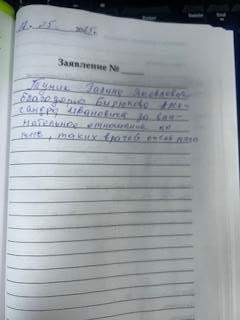 25
Заявление №
Галина Яковлевна
благодарю Бирюкова Алек-
сандра Ивановича за вни-
мательное отношение ко
мне, таких врачей очень мало